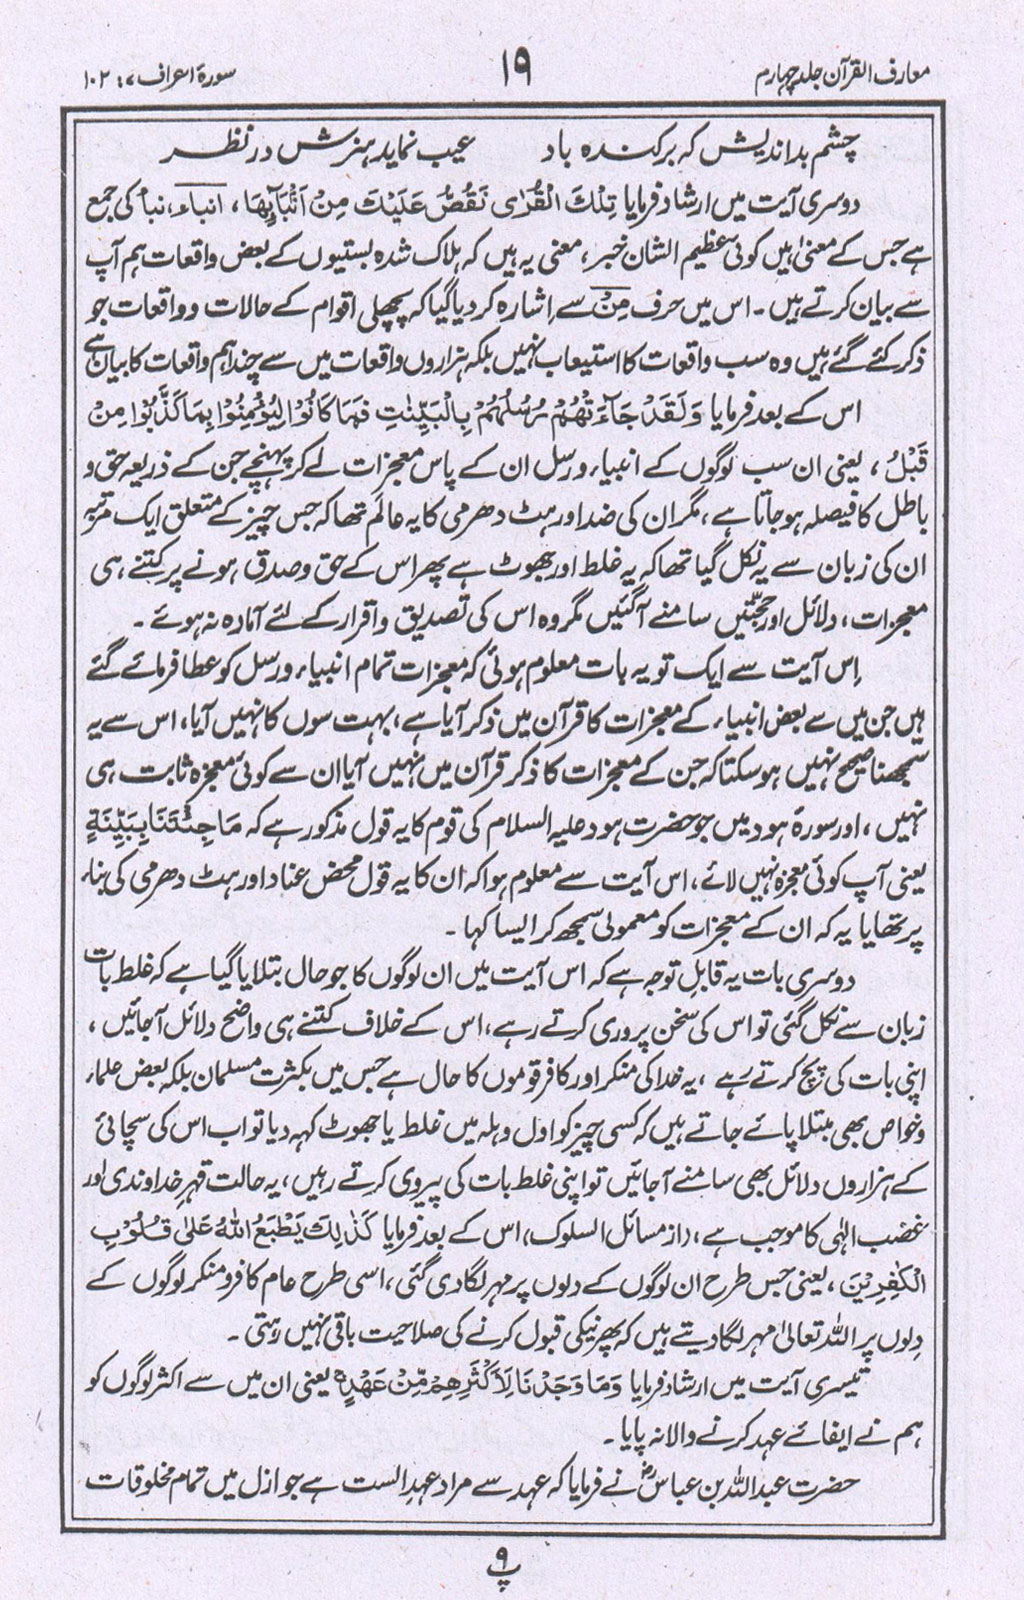 معارف القرآن جلد چہارم
۱۹
سورۂ اعراف ۷ : ۱۰۲
چشم بداندیش کہ برکندہ باد عیب نماید ہنرش در نظر
دوسری آیت میں ارشاد فرمایا تِلْكَ الْقُرٰى نَقُصُّ عَلَيْكَ مِنْ اَنْۢبَآئِهَا، انباء، نبأ کی جمع
ہے جس کے معنی ہیں کوئی عظیم الشان خبر، معنی یہ ہیں کہ ہلاک شدہ بستیوں کے بعض واقعات ہم آپ
سے بیان کرتے ہیں۔ اس میں حرف مِنْ سے اشارہ کر دیا گیا کہ پچھلی اقوام کے حالات و واقعات جو
ذکر کئے گئے ہیں وہ سب واقعات کا استیعاب نہیں بلکہ ہزاروں واقعات میں سے چند اہم واقعات کا بیان ہے
اس کے بعد فرمایا وَلَقَدْ جَآءَتْهُمْ رُسُلُهُمْ بِالْبَيِّنٰتِ فَمَا كَانُوْا لِيُؤْمِنُوْا بِمَا كَذَّبُوْا مِنْ
قَبْلُ، یعنی ان سب لوگوں کے انبیاء و رسل ان کے پاس معجزات لے کر پہنچے جن کے ذریعہ حق و
باطل کا فیصلہ ہو جاتا ہے، مگر ان کی ضد اور ہٹ دھرمی کا یہ عالَم تھا کہ جس چیز کے متعلق ایک مرتبہ
ان کی زبان سے یہ نکل گیا تھا کہ یہ غلط اور جھوٹ ہے پھر اس کے حق و صدق ہونے پر کتنے ہی
معجزات، دلائل اور حجتیں سامنے آگئیں مگر وہ اس کی تصدیق و اقرار کے لئے آمادہ نہ ہوئے۔
اِس آیت سے ایک تو یہ بات معلوم ہوئی کہ معجزات تمام انبیاء و رسل کو عطا فرمائے گئے
ہیں جن میں سے بعض انبیاء کے معجزات کا قرآن میں ذکر آیا ہے، بہت سوں کا نہیں آیا، اس سے یہ
سمجھنا صحیح نہیں ہو سکتا کہ جن کے معجزات کا ذکر قرآن میں نہیں آیا ان سے کوئی معجزہ ثابت ہی
نہیں، اور سورۂ ہود میں جو حضرت ہود علیہ السلام کی قوم کا یہ قول مذکور ہے کہ مَا جِئْتَنَا بِبَيِّنَةٍ
یعنی آپ کوئی معجزہ نہیں لائے، اس آیت سے معلوم ہوا کہ ان کا یہ قول محض عناد اور ہٹ دھرمی کی بناء
پر تھا یا یہ کہ ان کے معجزات کو معمولی سمجھ کر ایسا کہا۔
دوسری بات یہ قابلِ توجہ ہے کہ اس آیت میں ان لوگوں کا جو حال بتلایا گیا ہے کہ غلط بات
زبان سے نکل گئی تو اس کی سخن پروری کرتے رہے، اس کے خلاف کتنے ہی واضح دلائل آجائیں،
اپنی بات کی پچ کرتے رہے، یہ خدا کی منکر اور کافر قوموں کا حال ہے جس میں بکثرت مسلمان بلکہ بعض علماء
وخواص بھی مبتلا پائے جاتے ہیں کہ کسی چیز کو اول وہلہ میں غلط یا جھوٹ کہہ دیا تو اب اس کی سچائی
کے ہزاروں دلائل بھی سامنے آجائیں تو اپنی غلط بات کی پیروی کرتے رہیں، یہ حالت قہرِ خداوندی اور
غضبِ الٰہی کا موجب ہے، (از مسائل السلوک) اس کے بعد فرمایا كَذٰلِكَ يَطْبَعُ اللّٰهُ عَلٰى قُلُوْبِ
الْكٰفِرِيْنَ، یعنی جس طرح ان لوگوں کے دلوں پر مہر لگا دی گئی، اسی طرح عام کافر و منکر لوگوں کے
دِلوں پر اللہ تعالیٰ مہر لگا دیتے ہیں کہ پھر نیکی قبول کرنے کی صلاحیت باقی نہیں رہتی۔
تیسری آیت میں ارشاد فرمایا وَمَا وَجَدْنَا لِاَكْثَرِهِمْ مِّنْ عَهْدٍ یعنی ان میں سے اکثر لوگوں کو
ہم نے ایفائے عہد کرنے والا نہ پایا۔
حضرت عبداللہ بن عباسؓ نے فرمایا کہ عہد سے مراد عہدِ الست ہے جو ازل میں تمام مخلوقات
پ ۹